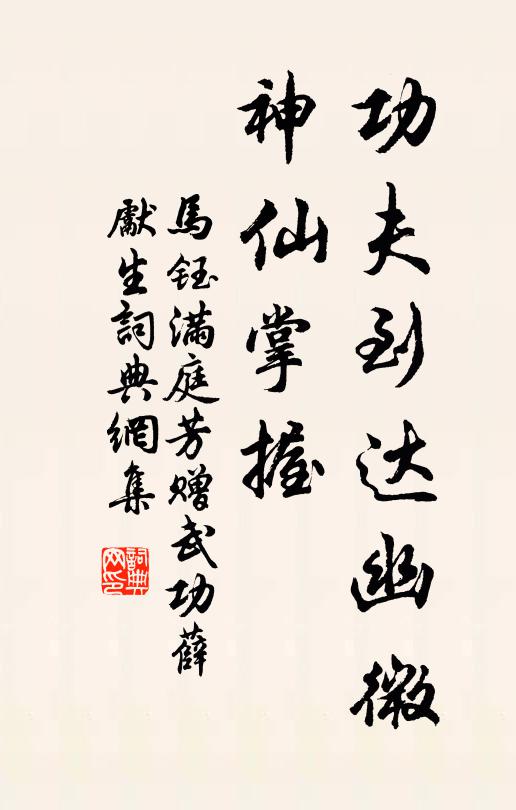 功夫到达幽微
神仙掌握
馬鈺满庭芳赠武功薛
獻生詞典網集
詞典
网印